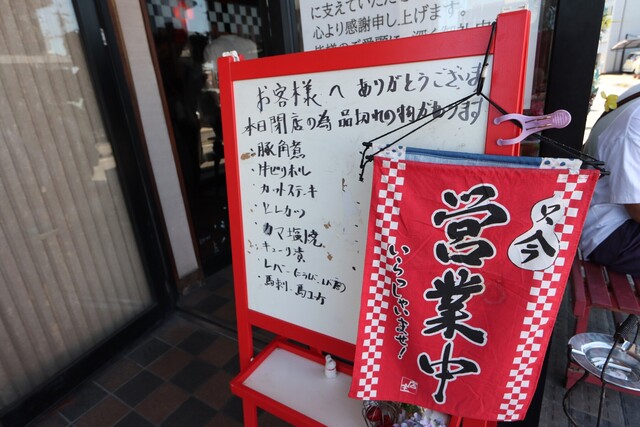 に支えていただき
心より感謝申し上げます。
お客様へ ありがとうございます
本日閉店の為 品切れの物があります
・豚角煮
・カットステキ
・ヒレカツ
・カマ塩焼
・キューリ漬
・レバー
・馬刺、馬ユッケ
只今
営業中
いらっしゃいませ!